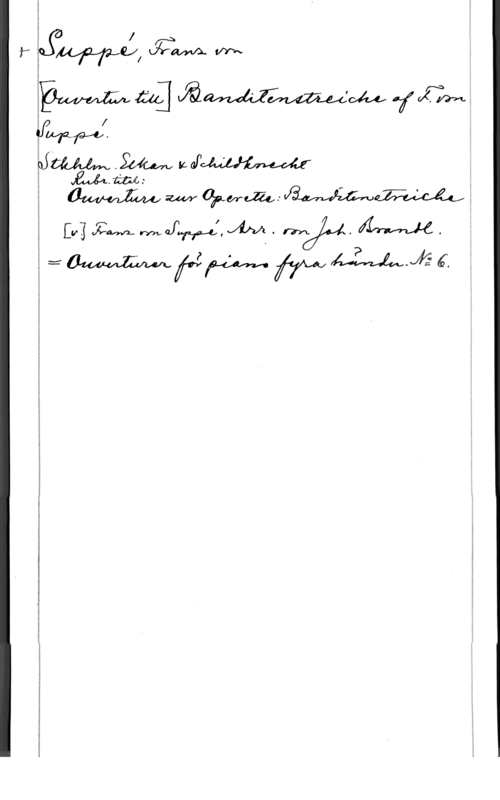 + Suppé, Franz von
[Ouvertur till] Banditenstreiche af F. von
Suppé.
Stkhlm. Elkan & Schildknecht
Rubr. titel:
Ouverture zur Operette: Banditenstreiche
[v] Franz von Suppé, Arr. von Joh. Brandl.
= Ouverturer för piano fyra händer. № 6.